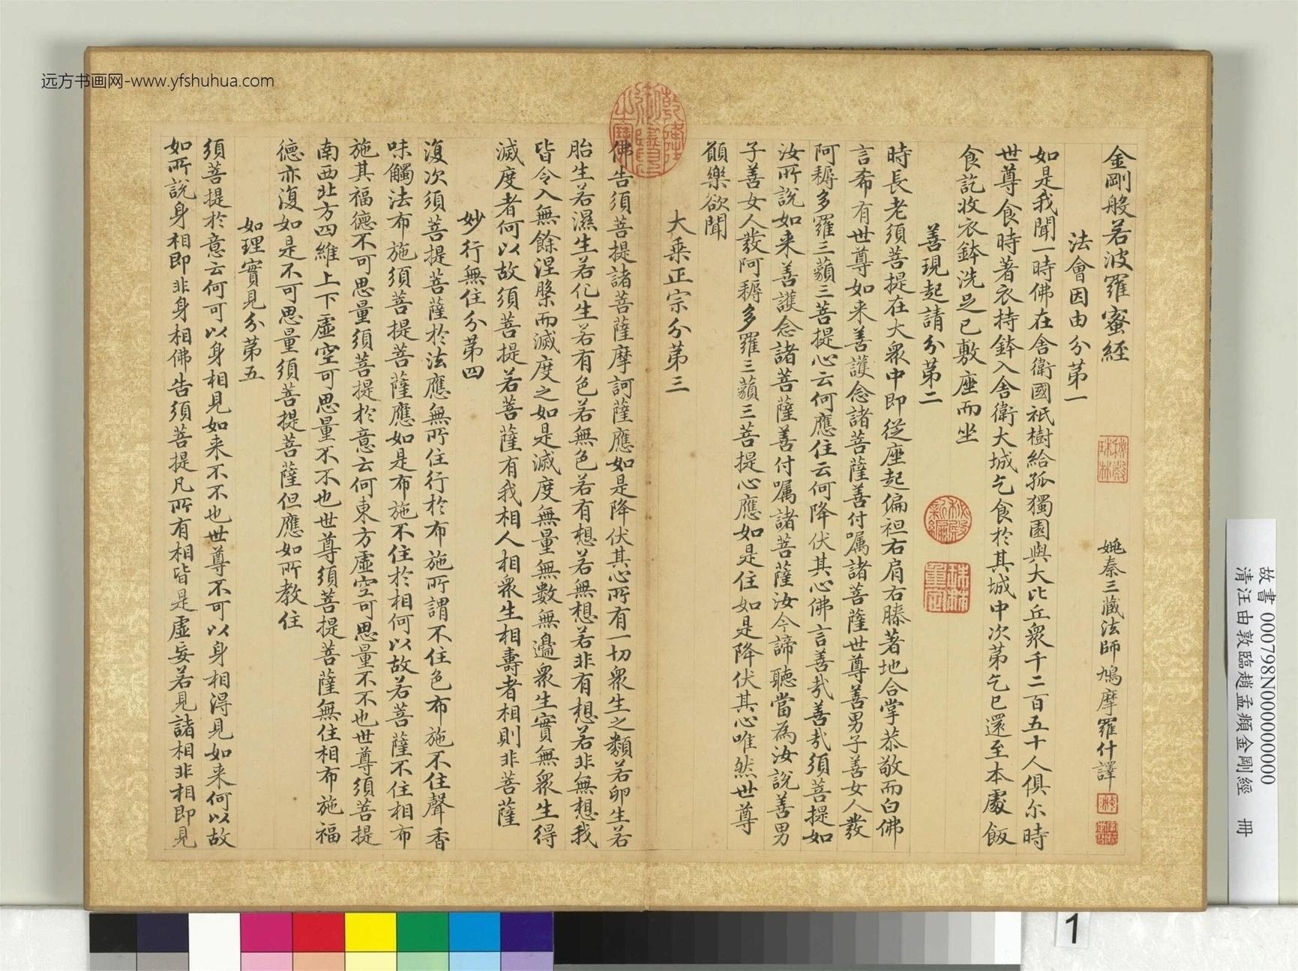 远方书画网-www.yfshuhua.com
金剛般若波羅蜜經
姚秦三藏法師鳩摩羅什譯
法會因由分第一
如是我聞一時佛在舍衛國祇樹給孤獨園與大比丘衆千二百五十人俱尔時
世尊食時著衣持鉢入舍衛大城乞食於其城中次第乞已還至本處飯
食訖收衣鉢洗足已敷座而坐
善現起請分第二
時長老須菩提在大衆中即從座起偏袒右肩右膝著地合掌恭敬而白佛
言希有世尊如来善護念諸菩薩善付囑諸菩薩世尊善男子善女人發
阿耨多羅三藐三菩提心云何應住云何降伏其心佛言善哉善哉須菩提如
汝所說如来善護念諸菩薩善付囑諸菩薩汝今諦聽當為汝說善男
子善女人發阿耨多羅三藐三菩提心應如是住如是降伏其心唯然世尊
願樂欲聞
大乘正宗分第三
佛告須菩提諸菩薩摩訶薩應如是降伏其心所有一切衆生之類若卵生若
胎生若濕生若化生若有色若無色若有想若無想若非有想若非無想我
皆令入無餘涅槃而滅度之如是滅度無量無數無邊衆生實無衆生得
滅度者何以故須菩提若菩薩有我相人相衆生相壽者相則非菩薩
妙行無住分第四
復次須菩提菩薩於法應無所住行於布施所謂不住色布施不住聲香
味觸法布施須菩提菩薩應如是布施不住於相何以故若菩薩不住相布
施其福德不可思量須菩提於意云何東方虛空可思量不不也世尊須菩提
南西北方四維上下虛空可思量不不也世尊須菩提菩薩無住相布施福
德亦復如是不可思量須菩提菩薩但應如所教住
如理實見分第五
須菩提於意云何可以身相見如来不不也世尊不可以身相得見如来何以故
如所說身相即非身相佛告須菩提凡所有相皆是虛妄若見諸相非相即見
故書 000798N000000000
清汪由敦臨趙孟頫金剛經 冊
1